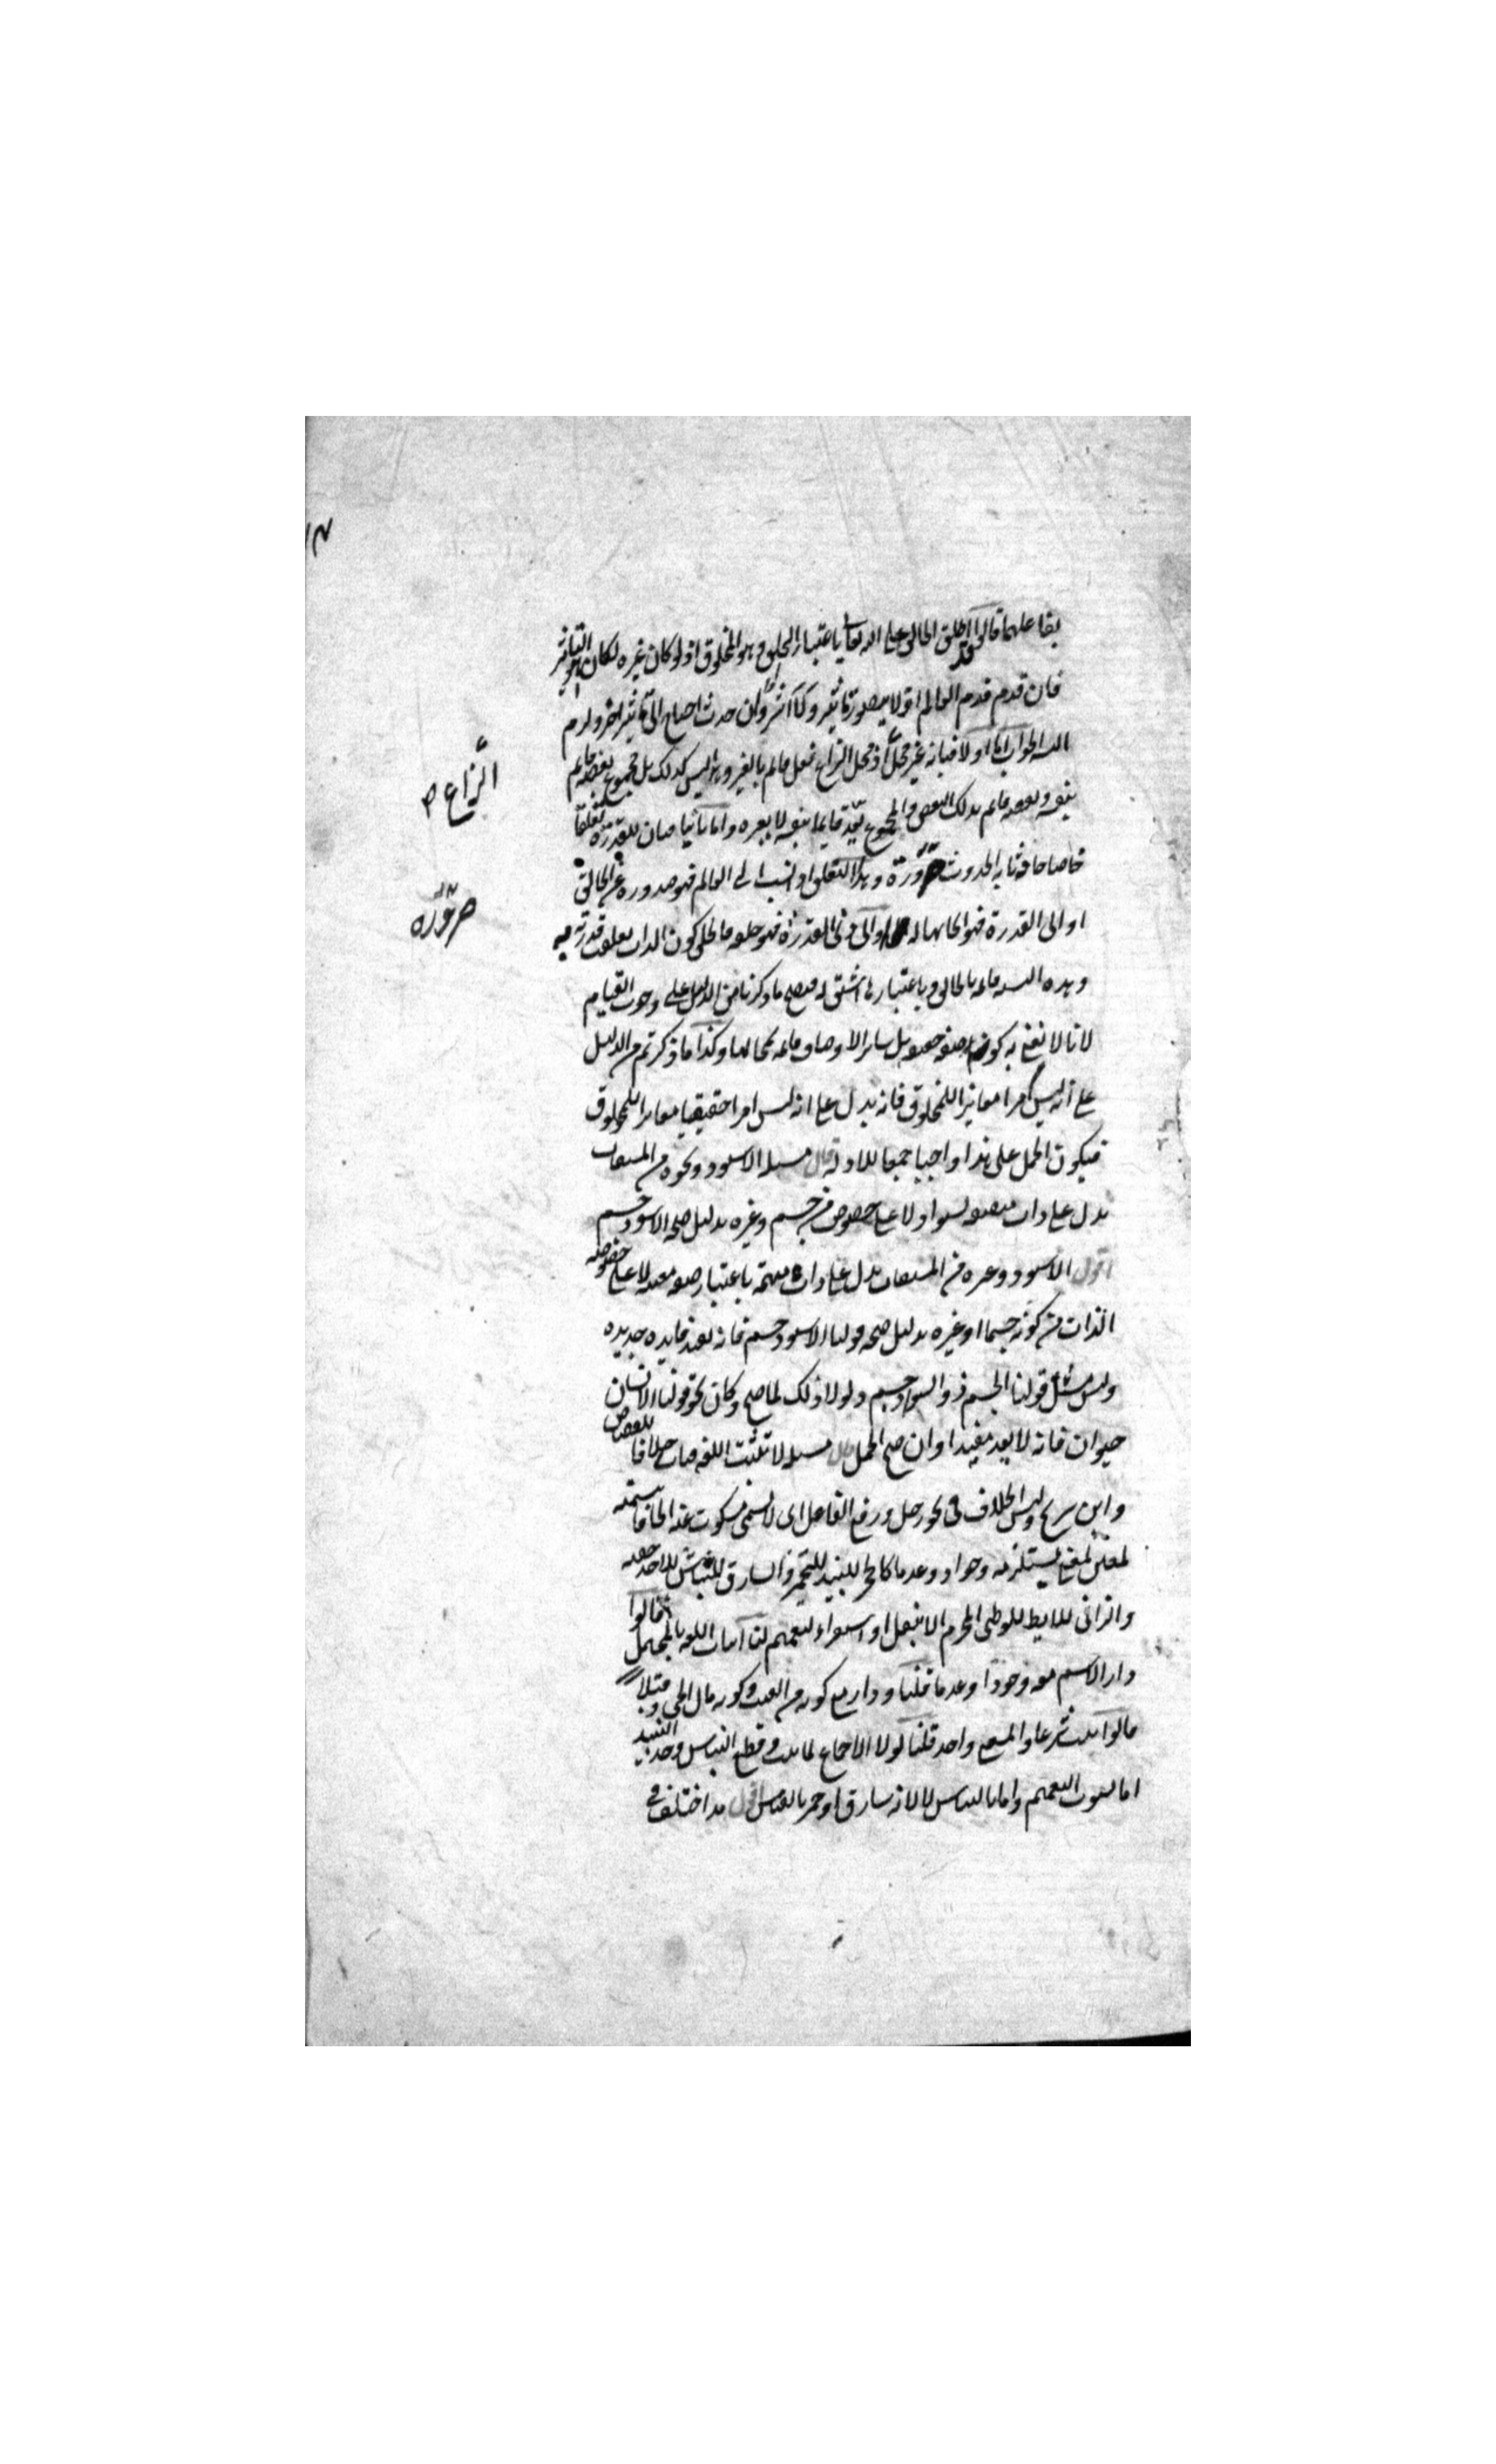 بفاعلهما قالوا قد اطلق الخالق على الله تعالى باعتبار الخلق وهو المخلوق اذ لو كان غيره لكان هو التاثير
فان قدم قدم العالم اذ لا يتصور تاثير ولا اثر وان حدث احتاج الى تاثير اخر ولزم
التسلسل الجواب اما اولا فبانه غير محل اذ محل النزاع فعل قائم بالغير وهذا ليس كذلك بل مجموع بعضه قائم
بنفسه وبعضه قائم بذلك البعض والمجموع يعد قائما بنفسه لا بغيره واما ثانيا فبان للقدرة تعلقا
النزاع
خاصا حادثا به الحدوث ضرورة وهذا التعلق اذا نسب الى العالم فهو صدوره عن الخالق
ضرورة
او الى القدرة فهو ايجابها له او الى ذي القدرة فهو خلقه فالخلق كون الذات تعلقت قدرته به
وهذه النسبة قائمة بالخالق وباعتبارها اشتق له فيصح ما ذكرنا من الدليل على وجوب القيام
لانا لا نعني به كونها صفة حقيقية بل سائر الاوصاف قائمة بمحالها وكذا ما ذكرتم من الدليل
على انه ليس امرا مغايرا للمخلوق فانه يدل على انه ليس امرا حقيقيا مغايرا للمخلوق
فيكون الحمل على هذا واجبا جمعا للادلة قال مسئلة الاسود ونحوه من المشتقات
يدل على ذات متصفة بسواد لا على خصوص من جسم وغيره بدليل صحة الاسود جسم
اقول الاسود وغيره من المشتقات يدل على ذات مبهمة باعتبار صفة معينة لا على خصوصية
الذات من كونه جسما او غيره بدليل صحة قولنا الاسود جسم فانه يفيد فايدة جديدة
وليس مثل قولنا الجسم ذو السواد جسم ولولا ذلك لما صح وكان نحو قولنا الانسان
حيوان فانه لا يعد مفيدا وان صح الحمل قال مسئلة لا تثبت اللغة قياسا خلافا للقاضي
وابن سريج وليس الخلاف في نحو رجل ورفع الفاعل اي لا يسمى مسكوت عنه الحاقا بتسمية
لمعين لمعنى يستلزمه وجودا وعدما كالخمر للنبيذ للتخمر والسارق للنباش للاخذ خفية
والزاني للايط للوطئ المحرم الا بنقل او استقراء التعميم لنا اثبات اللغة بالمحتمل قالوا
دار الاسم معه وجودا وعدما قلنا ودار مع كونه من العنب وكونه مال الحي وقبلا
قالوا ثبت شرعا والمعنى واحد قلنا لولا الاجماع لما ثبت وقطع النباش وحد النبيذ
اما لثبوت التعميم واما بالقياس لا لانه سارق او خمر بالقياس اقول قد اختلف في